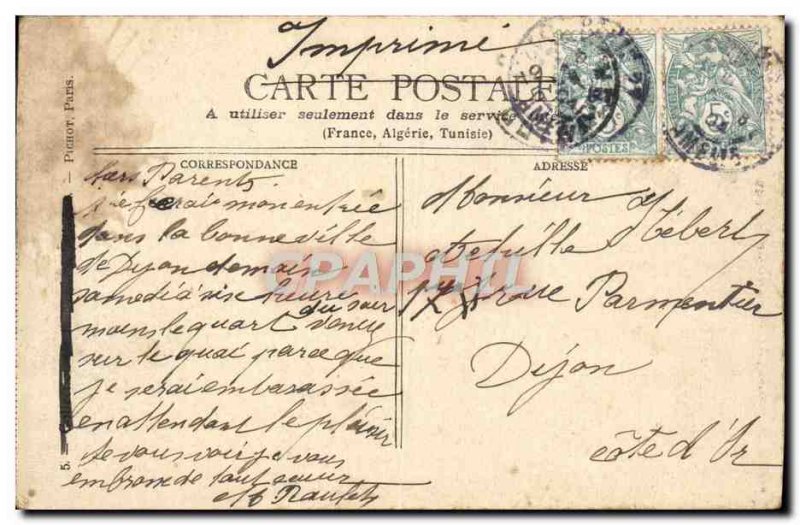 Imprimé
CARTE POSTALE
A utiliser seulement dans le service
(France, Algérie, Tunisie)
5. - PICHOT, Paris.
CORRESPONDANCE
chers Parents
je ferai mon entrée
dans la bonne ville
de Dijon demain
samedi à six heures
du soir
moins le quart venez
sur le quai parce que
je serai embarassée
en attendant le plaisir
de vous voir je vous
embrasse de tout coeur
ADRESSE
Monsieur Hébert
rue Parmentier
Dijon
côte d'Or
5c
POSTES
CPAPHIL